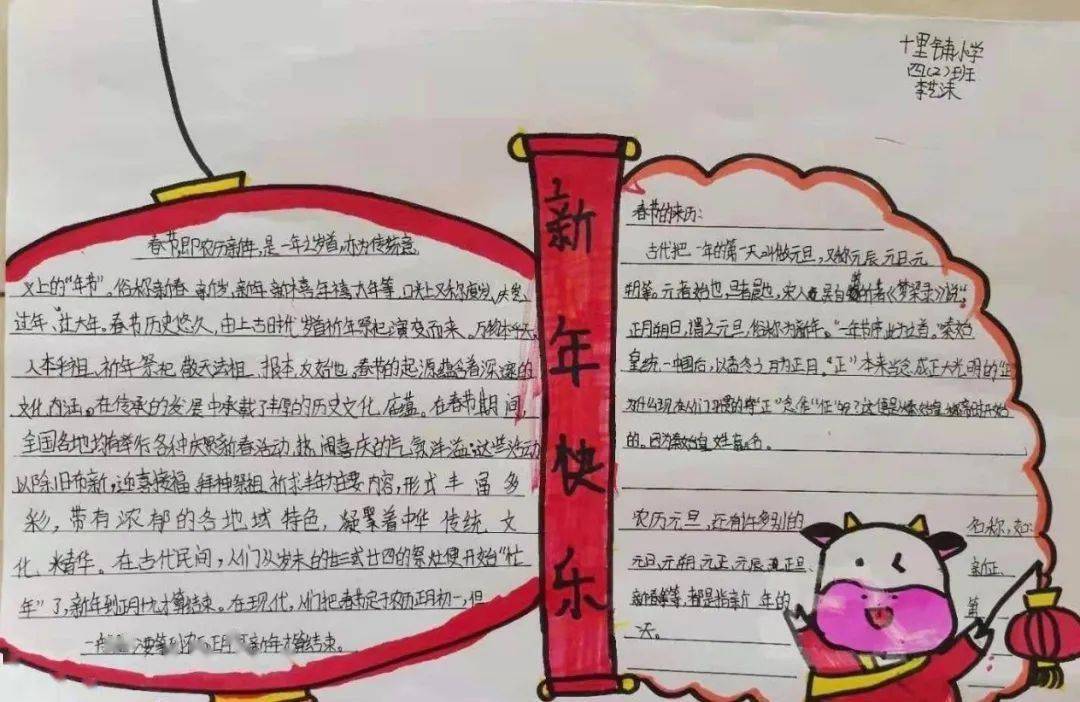 十里铺小学
四(2)班
李艺沫
春节,即农历新年,是一年之岁首,亦为传统意
义上的“年节”。俗称新春、新岁、新年、新禧、年禧、大年等,口头上又称度岁、庆岁、
过年、过大年。春节历史悠久,由上古时代岁首祈年祭祀演变而来。万物本乎天、
人本乎祖,祈年祭祀、敬天法祖,报本反始也。春节的起源蕴含着深邃的
文化内涵,在传承的发展中承载了丰厚的历史文化底蕴。在春节期间,
全国各地均有举行各种庆贺新春活动,热闹喜庆的气氛洋溢;这些活动
以除旧布新、迎喜接福、拜神祭祖、祈求丰年为主要内容,形式丰富多
彩,带有浓郁的各地域特色,凝聚着中华传统文
化精华。在古代民间,人们从岁末的廿三或廿四的祭灶便开始“忙
年”了,新年到正月十九才算结束。在现代,人们把春节定于农历正月初一,但
一 要等到农历正月 新年才算结束。
新年快乐
春节的来历:
古代把一年的第一天叫做元旦,又称元辰、元日、元
朔等。元者始也,旦者晨也,宋人吴自牧所著《梦粱录》说:“
正月朔日,谓之元旦,俗称为新年。”一年节序,此为之首。”秦始
皇统一中国后,以孟冬之月为正月。“正”本来当念成正大光明的“正
为什么现在人们习惯的将“正”念作“征”的?这便是从秦始皇 开始
的。因为秦始皇姓嬴名
农历元旦,还有许多别的名称,如:
元旦、元朔、元正、元辰、正旦、新正、
新春等,都是指新年的第一
天。